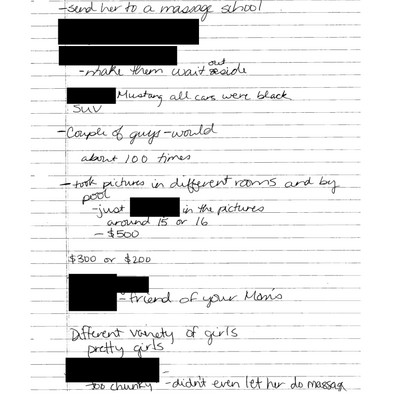 -send her to a massage school
-make them wait outside
Mustang all cars were black
SUV
-Couple of guys-would
about 100 times
-took pictures in different rooms and by
pool
-just in the pictures
around 15 or 16
-$500
$300 or $200
-friend of your Mom's
Different variety of girls
pretty girls
-too chunky -didn't even let her do massage